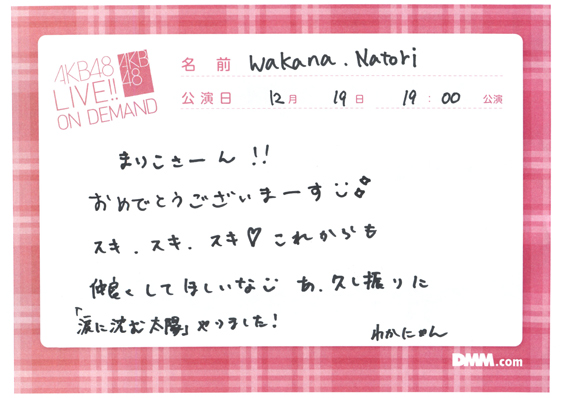 AKB48
LIVE!!
ON DEMAND
AKB
48
名前 Wakana.Natori
公演日 12月 19日 19:00 公演
まりこさーん!!
おめでとうございまーす
スキ.スキ.スキ♡これからも
仲良くしてほしいな あ、久し振りに
「涙に沈む太陽」やりました!
わかにゃん
DMM.com